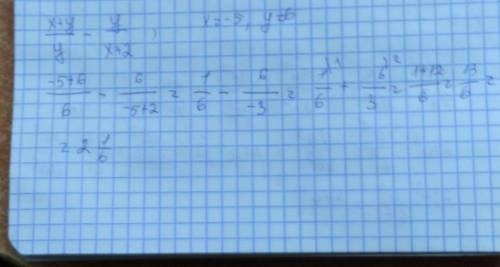 (x+y)/y - y/(x+2), x=-5, y=6
(-5+6)/6 - 6/(-5+2) = 1/6 - 6/(-3) = 1\1/6 + 6\2/3 = (1+12)/6 = 13/6 =
= 2 1/6